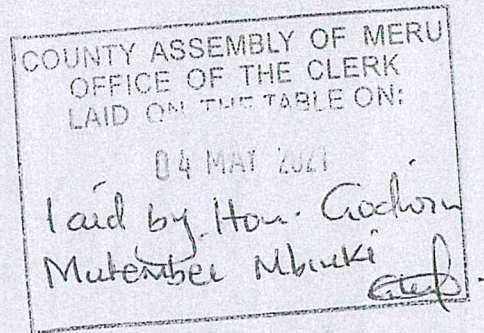 COUNTY ASSEMBLY OF MERU
OFFICE OF THE CLERK
LAID ON THE TABLE ON:
04 MAY 2021
laid by Hon. Godwin
Mutembei Mbiuki